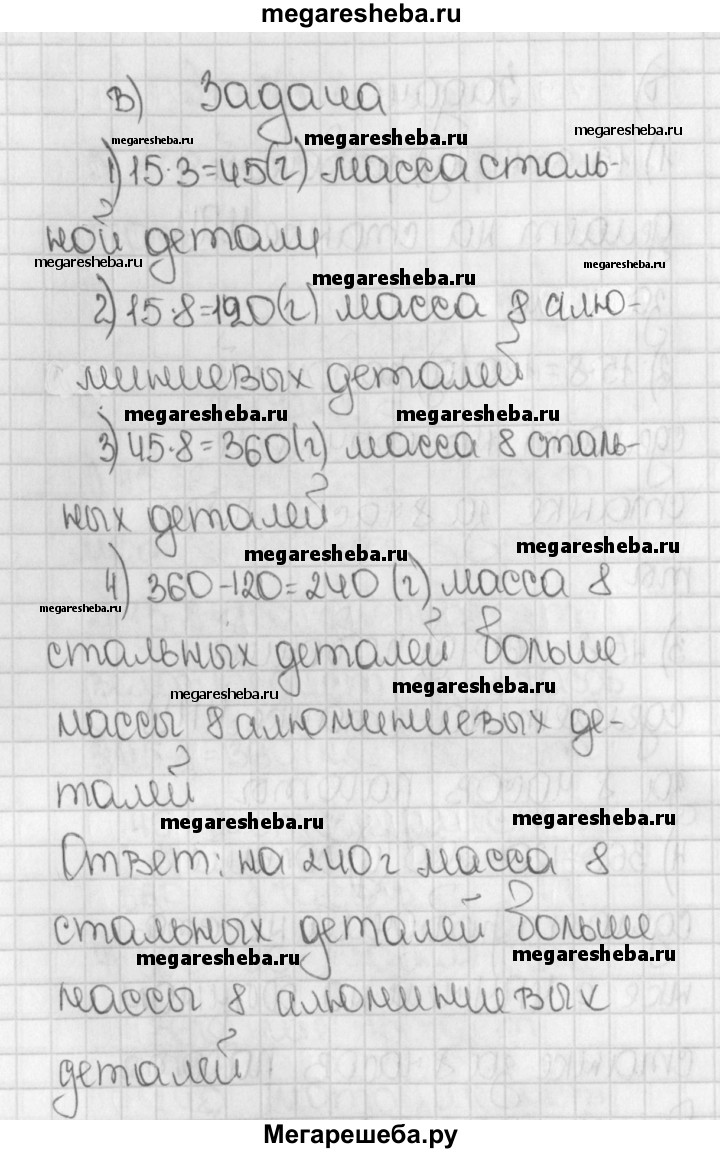 megaresheba.ru
в) Задача
megaresheba.ru megaresheba.ru megaresheba.ru
1) 15·3=45(г) масса сталь-
ной детали
megaresheba.ru megaresheba.ru megaresheba.ru
2) 15·8=120(г) масса 8 алю-
миниевых деталей
megaresheba.ru megaresheba.ru
3) 45·8=360(г) масса 8 сталь-
ных деталей
megaresheba.ru megaresheba.ru
4) 360-120=240 (г) масса 8
megaresheba.ru
стальных деталей больше
megaresheba.ru megaresheba.ru
массы 8 алюминиевых де-
талей
megaresheba.ru megaresheba.ru
Ответ: на 240 г масса 8
стальных деталей больше
megaresheba.ru megaresheba.ru
массы 8 алюминиевых
деталей
Мегарешеба.ру